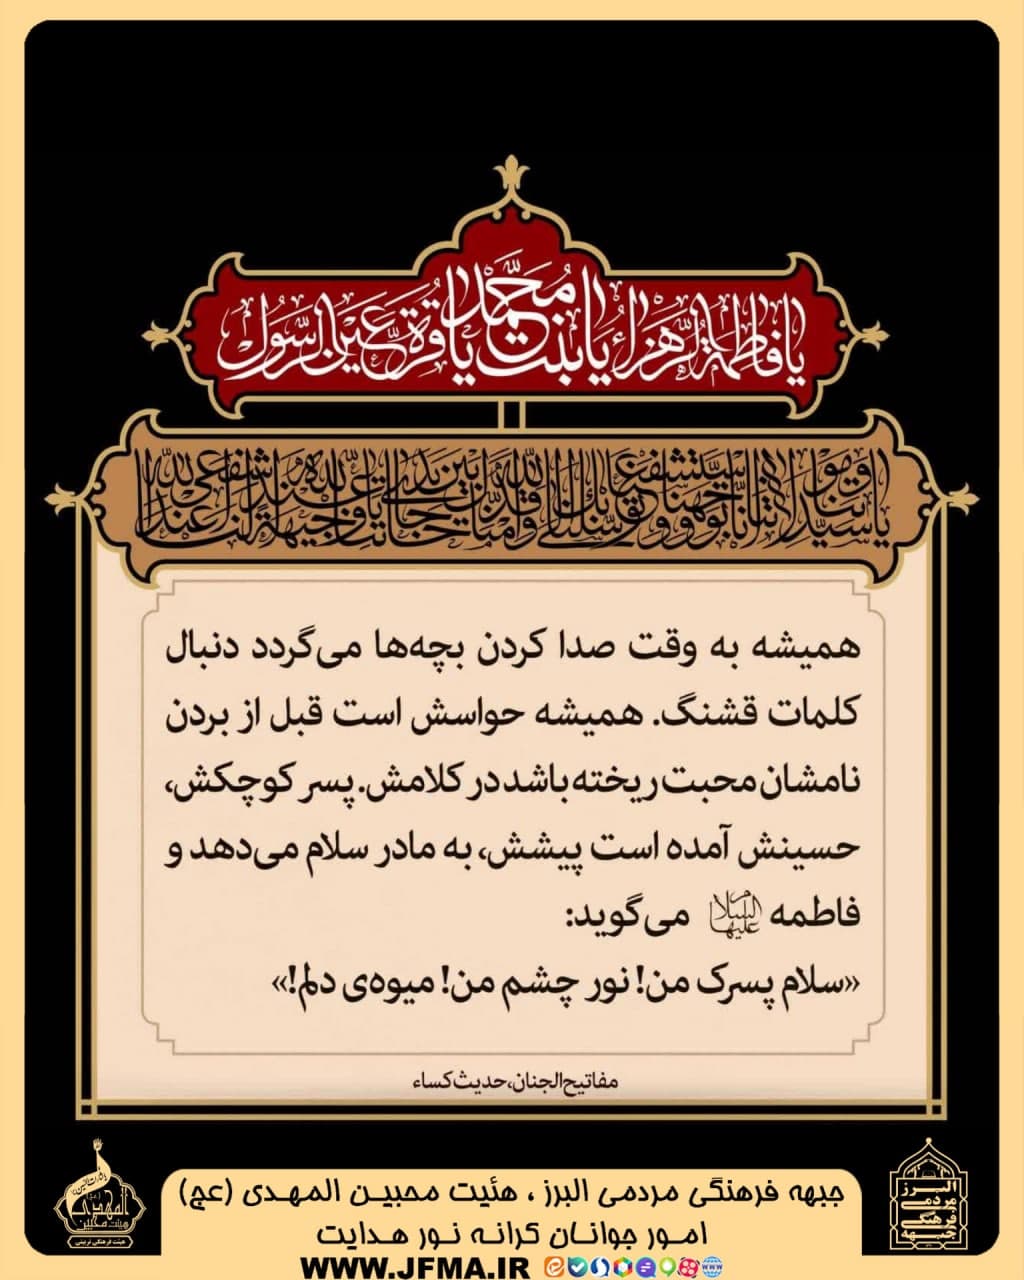 يا فاطمة الزهراء يا بنت محمد يا قرة عين الرسول
يا سيدتنا ومولاتنا إنا توجهنا واستشفعنا وتوسلنا بك إلى الله وقدمناك بين يدي حاجاتنا يا وجيهة عند الله اشفعي لنا عند الله
همیشه به وقت صدا کردن بچه‌ها می‌گردد دنبال
کلمات قشنگ. همیشه حواسش است قبل از بردن
نامشان محبت ریخته باشد در کلامش. پسر کوچکش،
حسینش آمده است پیشش، به مادر سلام می‌دهد و
فاطمه علیها السلام می‌گوید:
«سلام پسرک من! نور چشم من! میوه‌ی دلم!»
مفاتیح‌الجنان، حدیث کساء
البرز
مردمی
فرهنگی
جبهه
المهدی
هیئت محبین
هیئت فرهنگی تربیتی
جبهه فرهنگی مردمی البرز ، هئیت محبین المهدی (عج)
امور جوانان کرانه نور هدایت
WWW.JFMA.IR